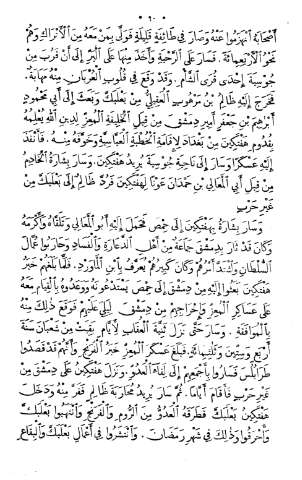 ٦٠
أصحابه انهزموا عنه وصار في طائفة قليلة فولى بمن معه من الأتراك وهم
نحو الأربعمائة . فسار على الرحبة وأخذ منها على البرّ إلى أن قرب من
جوسية إحدى قرى الشأم . وقد وقع في قلوب العربان منه مهابة .
فخرج إليه ظالم بن مرهوب العقيلي من بعلبك وبعث إلى أبي محمود
إبرهيم بن جعفر أمير دمشق من قبل الخليفة المعز لدين الله يعلمه
بقدوم هفتكين من بغداد لإقامة الخطبة العباسية وخوفه منه . فأنفذ
إليه عسكرا وسار إلى ناحية جوسية يريد هفتكين . وسار بشارة الخادم
من قبل أبي المعالي بن حمدان عونا لهفتكين فردّ ظالم إلى بعلبك من
غير حرب
وسار بشارة بهفتكين إلى حمص فحمل إليه أبو المعالي وتلقاه وأكرمه
وكان قد ثار بدمشق جماعة من أهل الدعارة والفساد وحاربوا عمال
السلطان واشتدّ أمرهم وكان كبيرهم يعرف بابن الماورد . فلما بلغهم خبر
هفتكين بعثوا إليه من دمشق إلى حمص يستدعونه ووعدوه بالقيام معه
على عساكر المعز وإخراجهم من دمشق ليلي عليهم فوقع ذلك منه
بالموافقة . وسار حتى نزل ثنية العقاب لأيام بقيت من شعبان سنة
أربع وستين وثلثمائة . فبلغ عسكر المعز خبر الفرنج وأنهم قد قصدوا
طرابلس فساروا بأجمعهم إلى لقاء العدوّ . ونزل هفتكين على دمشق من
غير حرب فأقام أياما . ثم سار يريد محاربة ظالم ففرّ منه ودخل
هفتكين بعلبك فطرقه العدوّ من الروم والفرنج وانتهبوا بعلبك
وأحرقوا وذلك في شهر رمضان . وانتشروا في أعمال بعلبك والبقاع